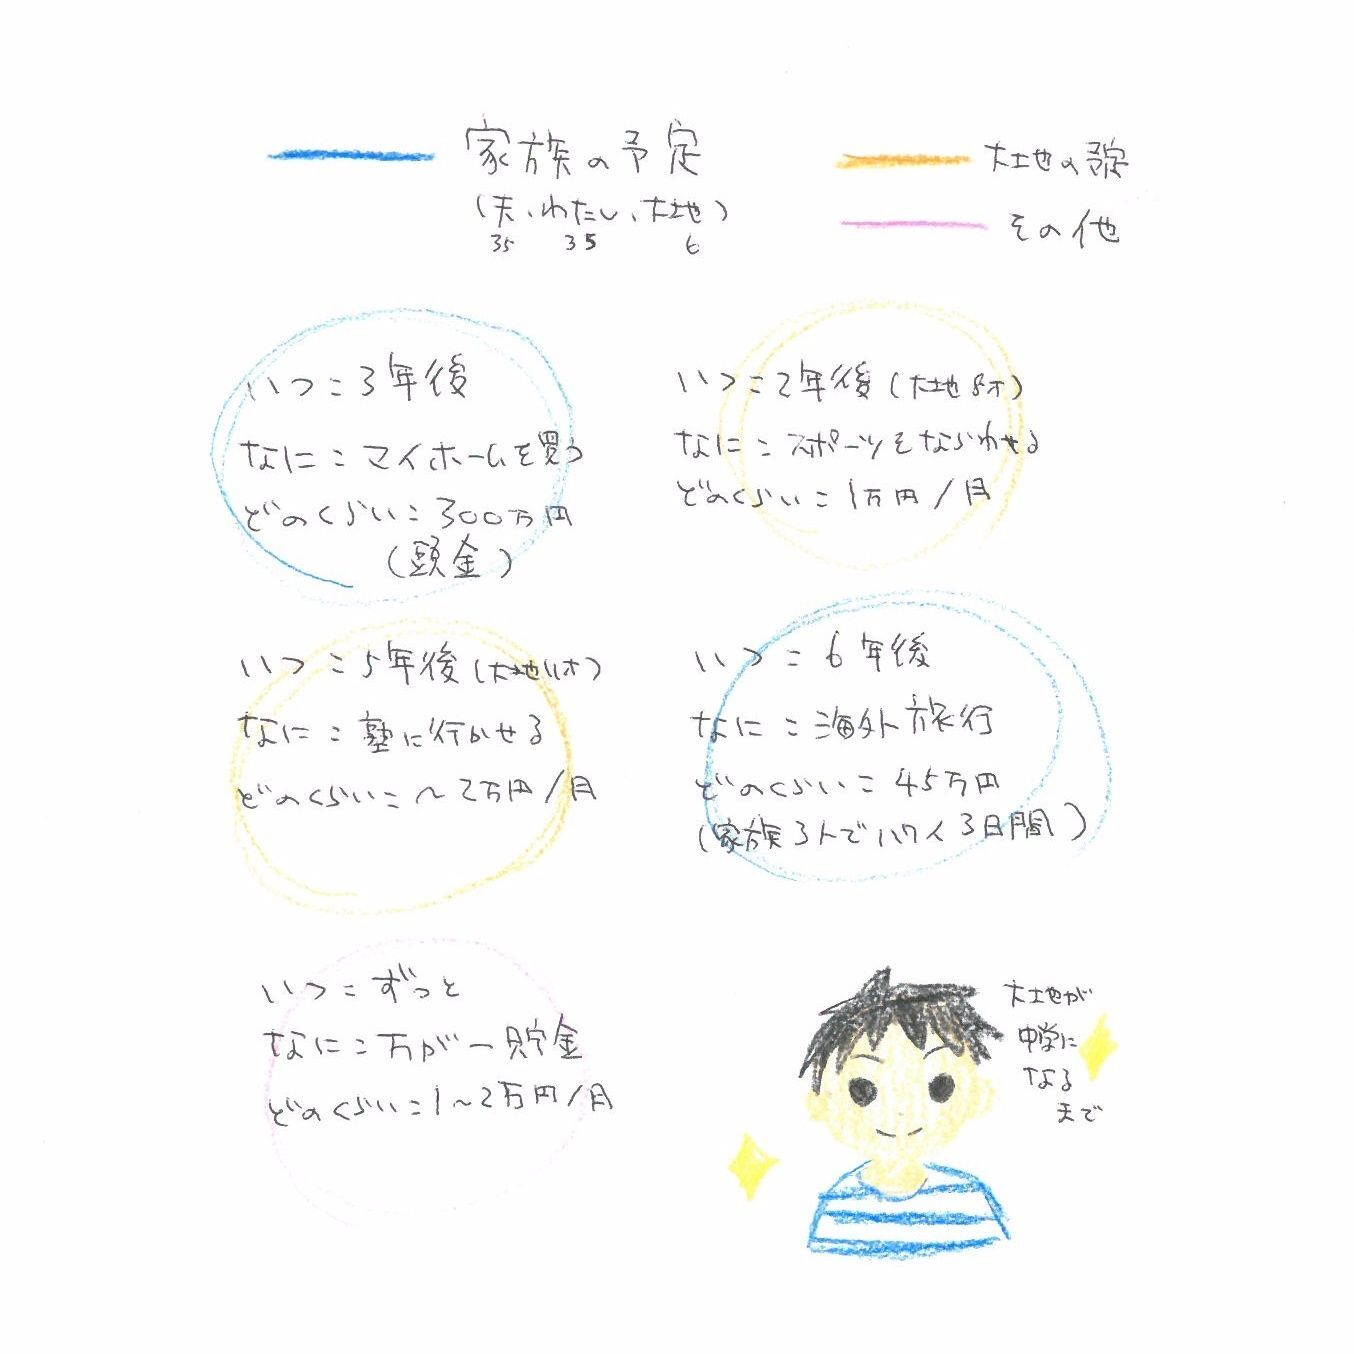 家族の予定
(夫、わたし、大地)
35 35 6
大地の予定
その他
いつ:3年後
なに:マイホームを買う
どのくらい:300万円
(頭金)
いつ:2年後(大地8才)
なに:スポーツをならわせる
どのくらい:1万円/月
いつ:5年後(大地11才)
なに:塾に行かせる
どのくらい:~2万円/月
いつ:6年後
なに:海外旅行
どのくらい:45万円
(家族3人でハワイ3日間)
いつ:ずっと
なに:万が一貯金
どのくらい:1~2万円/月
大地が
中学に
なる
まで